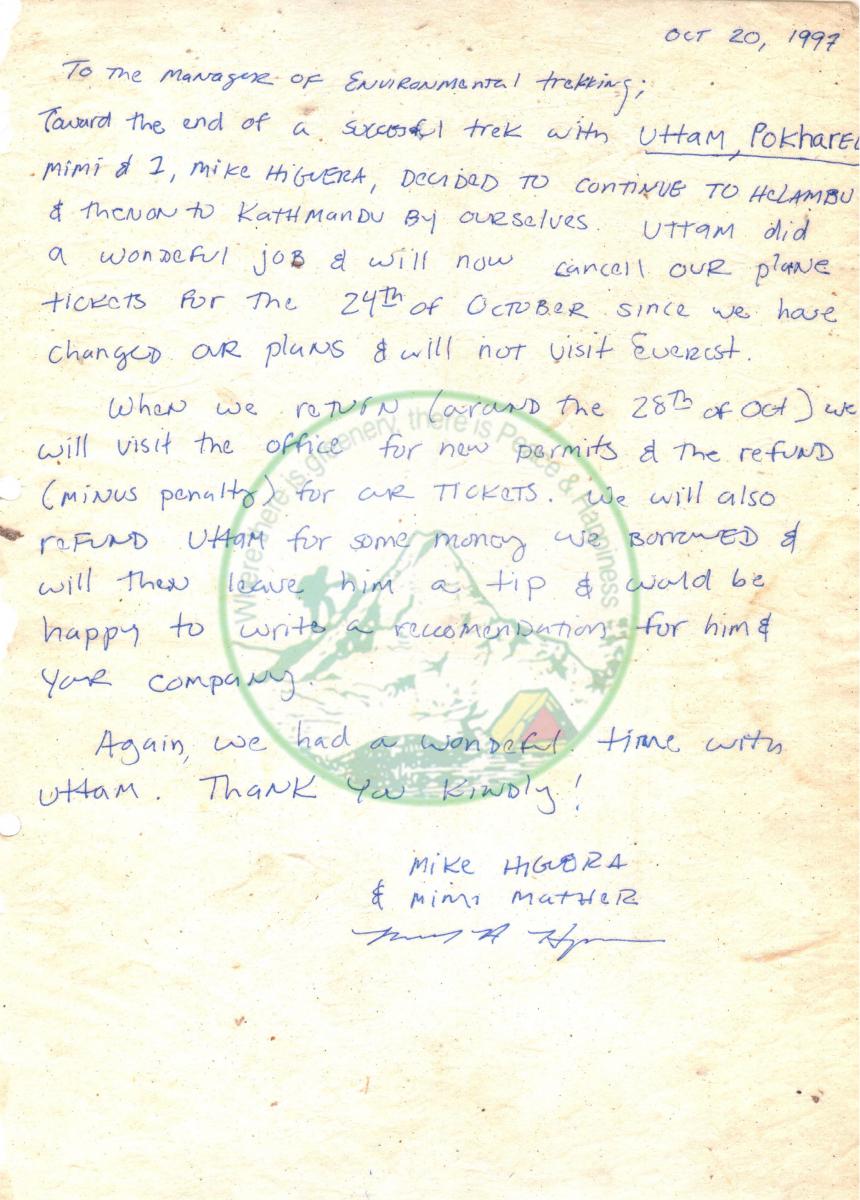 OCT 20, 1997
To the Manager of Environmental trekking;
Toward the end of a successful trek with Uttam, Pokharel
Mimi & I, Mike Higuera, decided to continue to Helambu
& then on to Kathmandu by ourselves. Uttam did
a wonderful job & will now cancell our plane
tickets for the 24th of October since we have
changed our plans & will not visit Everest.
When we return (around the 28th of Oct) we
will visit the office for new permits & the refund
(minus penalty) for our tickets. We will also
refund Uttam for some money we borrowed &
will then leave him a tip & would be
happy to write a reccomendation for him &
your company.
Again, we had a wonderful time with
Uttam. Thank you kindly!
Mike Higuera
& Mimi Mather
Where there is greenery, there is Peace & Happiness